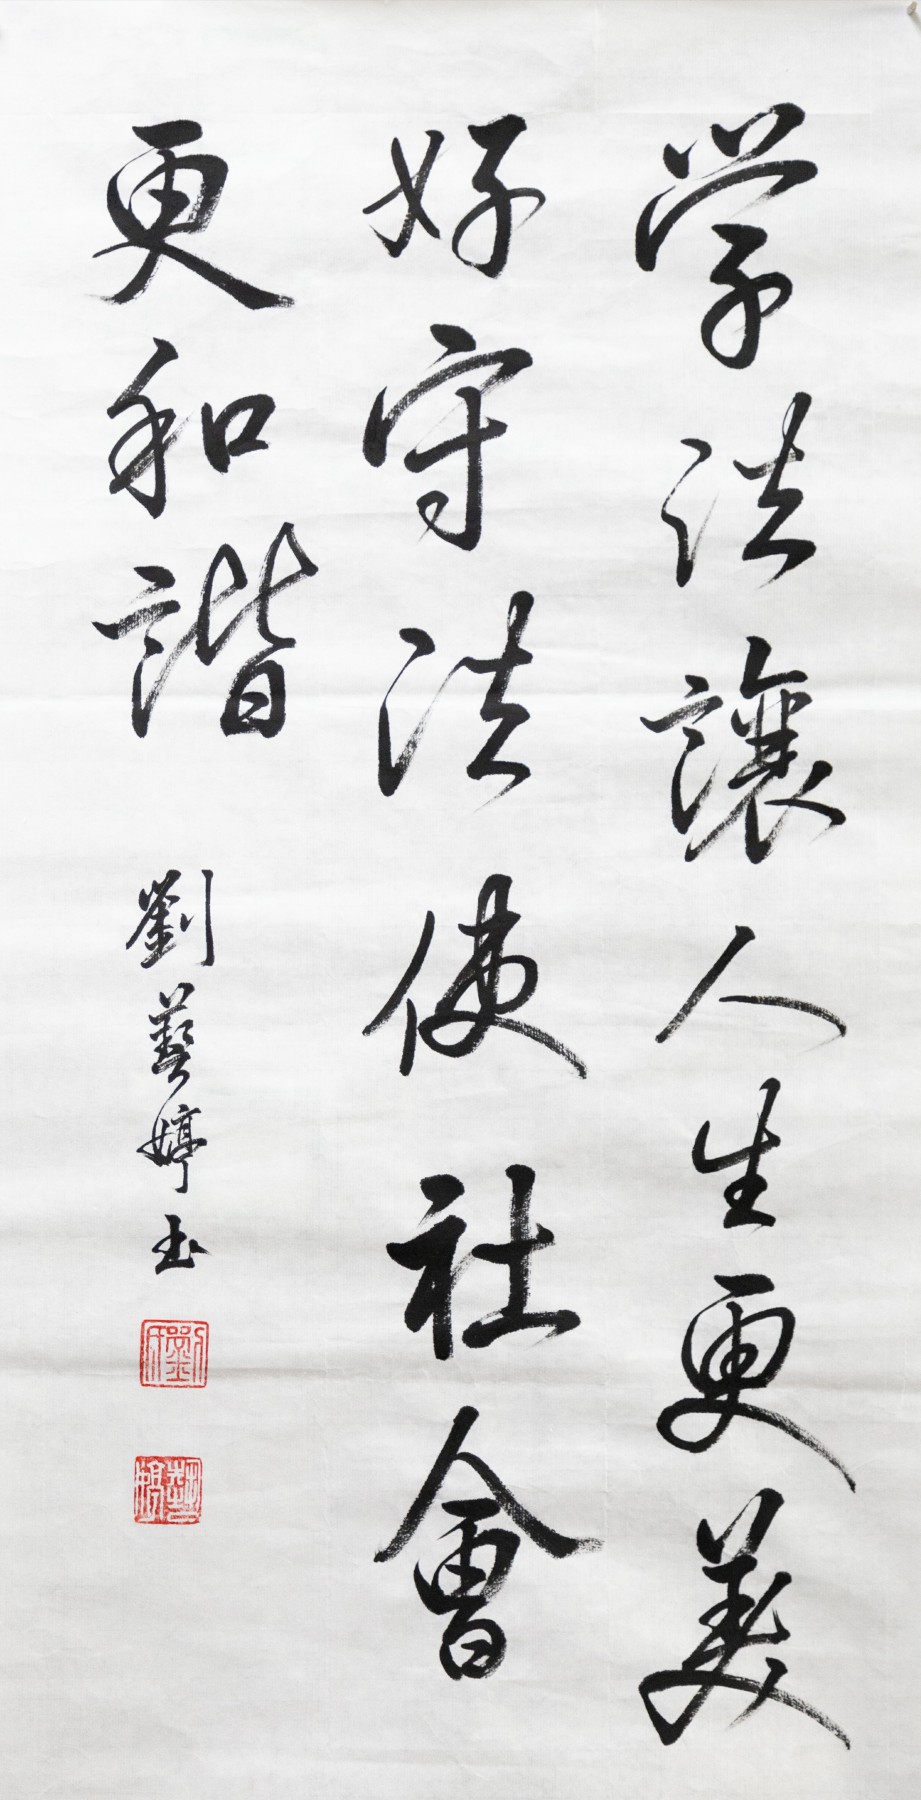 学法讓人生更美
好守法使社會
更和諧
劉藝婷書